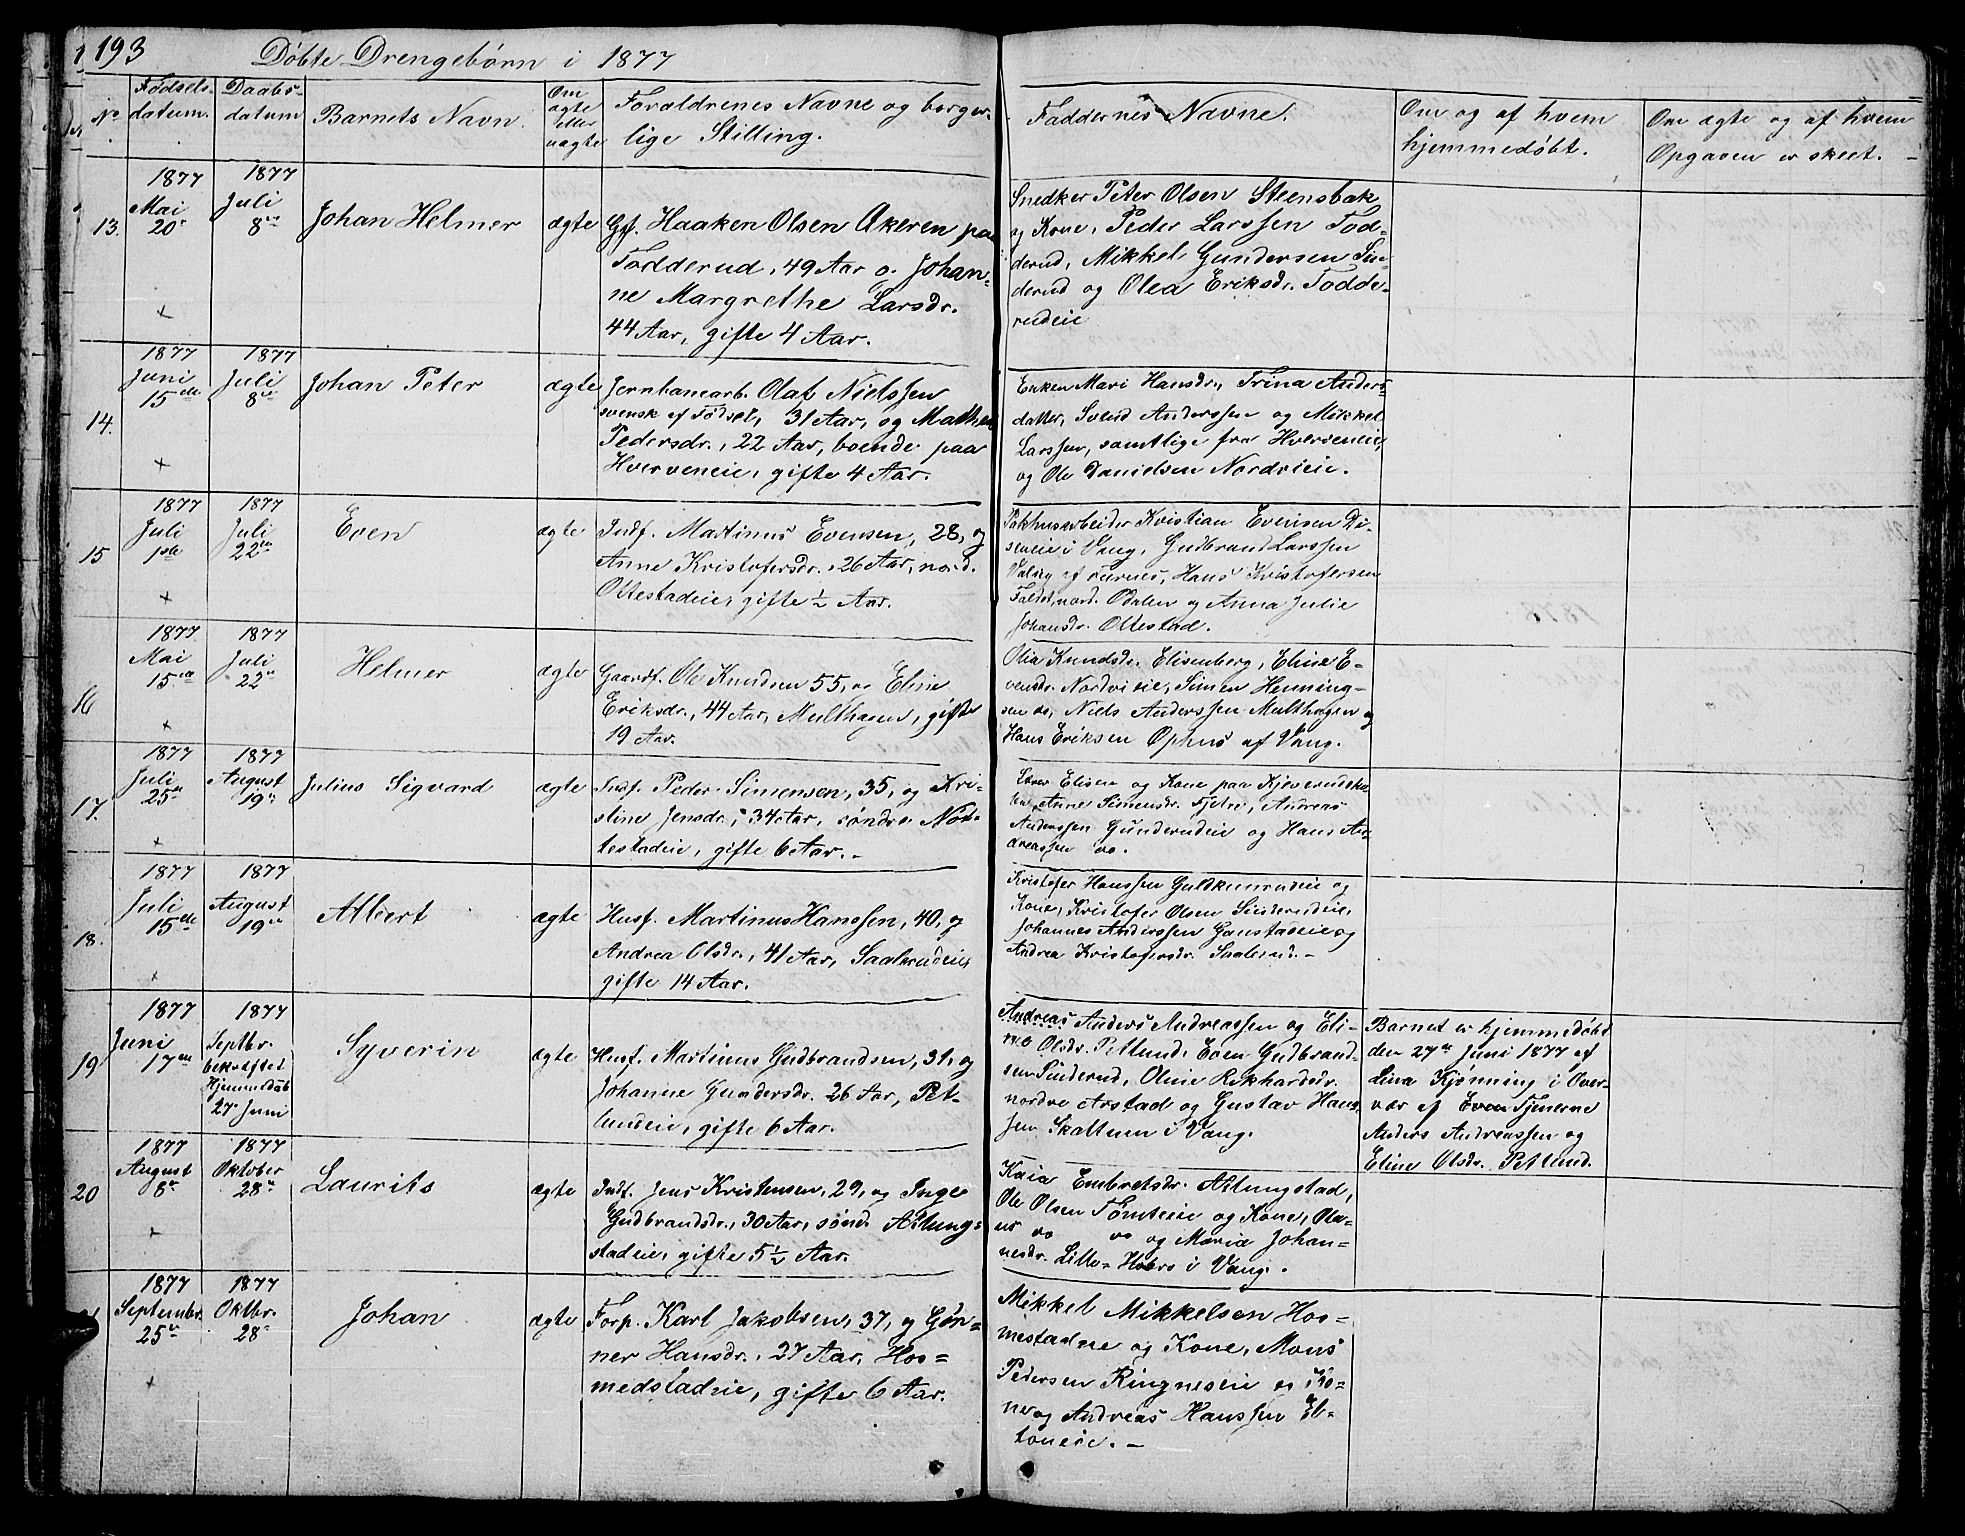 193
Døbte Drengebørn i 1877
No
Fødsels-
datum.
Daabs-
datum
Barnets Navn.
Om
ægte
eller
uægte
Forældrenes Navne og borger-
lige Stilling.
Faddernes Navne.
Om og af hvem
hjemmedøbt.
Om ægte og af hvem
Opgaven er skeet. -
13.
1877
Mai
20
+
1877
Juli
8de
Johan Helmer
ægte
Gf. Haaken Olsen Akeren paa
Fodderud, 49 Aar o. Johan-
ne Margrethe Larsdr.
44 Aar, gifte 4 Aar.
Snedker Peter Olsen Steensbak
og Kone, Peder Larssen Fod-
derud, Mikkel Gundersen Sin-
derud og Olea Eriksdr. Fodde-
rudeie
14.
1877
Juni
15de
+
1877
Juli
8de
Johan Peter
ægte
Jernbanearb. Olaf Nielssen
svensk af Fødsel, 31 Aar, og Mathea
Pedersdr., 22 Aar, boende paa
Hverveneie, gifte 4 Aar.
Enken Mari Hansdr., Trina Anders-
datter, Svend Anderssen og Mikkel
Larssen, samtlige fra Hverveneie,
og Ole Danielsen Nordvieie.
15
1877
Juli
1ste
+
1877
Juli
22de
Even
ægte
Indf. Martinus Evensen, 28, og
Anne Kristofersdr., 26 Aar, nord.
Ottestadeie, gifte ½ Aar.
Pakhusarbeider Kristian Evensen Di-
seneie i Vang, Gudbrand Larssen
Valsig af Furnes, Hans Kristofersen
Faldet, nord. Odalen og Anna Julie
Johansdr. Ottestad.
16
1877
Mai
15de
+
1877
Juli
22
Helmer
ægte
Gaardf. Ole Knudsen 55, og Eline
Eriksdr., 44 Aar, Multhagen, gifte
19 Aar.
Olia Knudsdr. Elisenberg, Eline E-
vensdr. Nordvieie, Simen Henning-
sen do, Niels Anderssen Multhagen og
Hans Eriksen Ophus af Vang.
17.
1877
Juli
25de
+
1877
August
19
Julius Sigvard
ægte
Indf. Peder Simensen, 35, og Kri-
stine Jensdr., 34 Aar, søndre Not-
testadeie, gifte 6 Aar. -
Elisen og Kone paa
Anne Simensdr. Fjetre, Andreas
Anderssen Gunderudeie og Hans An-
dreassen do.
18.
1877
Juli
15de
+
1877
August
19de
Albert
ægte
Husf. Martinus Hanssen, 40, og
Andrea Olsdr., 41 Aar, Saalerudeie,
gifte 14 Aar.
Kristofer Hanssen Guldkunrudeie og
Kone, Kristofer Olsen Sinderudeie,
Johannes Anderssen Gaustadeie og
Andrea Kristofersdr. Saalerud. -
19
1877
Juni
17de
1877
Septbr.
bekræftet
Hjemmedaab
27 Juni
Syverin
ægte
Husf. Martinus Gudbrandsen, 31, og
Johanne Gundersdr. 26 Aar, Pet-
lundeie, gifte 6 Aar.
Andreas Anders Andreassen og Eli-
ne Olsdr. Petlund, Even Gudbrand-
sen Sinderud, Oline Rikhardsdr.
nordre Arstad og Gustav Hans-
sen Skattum i Vang.
Barnet er hjemmedøbt
den 27de Juni 1877 af
Lina Kjønning i Over-
vær af Even Tjenerne
Anders Andreassen og
Eline Olsdr. Petlund.
20
1877
August
8de
+
1877
Oktober
28de
Laurits
ægte
Indf. Jens Kristensen, 29, og Inge
Gudbrandsdr., 30 Aar, sønd. Atlung-
stadeie, gifte 5½ Aar.
Kaia Embretsdr. Atlungstad,
Ole Olsen Tømteeie og Kone, Ola-
us do do og Maria Johan-
nesdr. Lille-Hobro i Vang.
1877
Septembr.
25de
+
1877
Oktbr.
28
Johan
ægte
Forp. Karl Jakobsen, 37, og Gøn-
ner Hansdr., 27 Aar, Hos-
medstadeie, gifte 6 Aar.
Mikkel Mikkelsen Hos-
mestadne og Kone, Mons
Pedersen Ringneseie og Ko-
ne og Andreas Hanssen Eb-
toneie. -